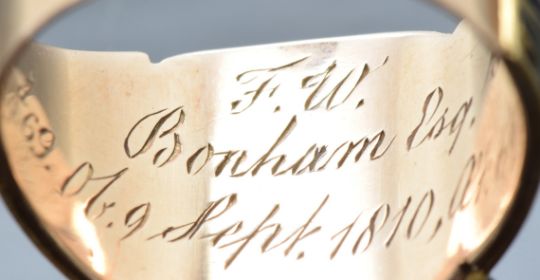 F. W.
Bonham Esq.
Ob. 9 Sept. 1810, Æt.
69.